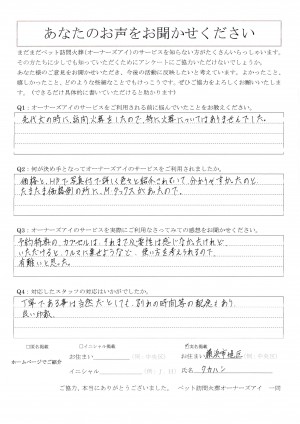 あなたのお声をお聞かせください
まだまだペット訪問火葬(オーナーズアイ)のサービスを知らない方がたくさんいらっしゃいます。
その方たちに少しでも知っていただくためにアンケートにご協力いただけないでしょうか。
あなた様のご意見をお聞かせいただき、今後の活動に反映したいと考えています。よかったこと、
嬉しかったこと、どのような些細なことでもけっこうです。ぜひご協力をよろしくお願いいたします。
(できるだけ具体的に書いていただけると助かります)
Q1：オーナーズアイのサービスをご利用される前に悩んでいたことをお教えください。
先代犬の時に、訪問火葬をしたので、特に火葬についてはありませんでした。
Q2：何が決め手となってオーナーズアイのサービスをご利用されましたか。
価格と、HPで写真付で詳しく色々と紹介されていて、分かりやすかったのと、
たまたま価格例の所に、Mダックスがあったので。
Q3：オーナーズアイのサービスを実際にご利用なさってみての感想をお聞かせください。
予約特典のカプセルは、それまで必要性は感じなかったけれど、
いただけると、クルマに乗せようなど、使い方を考えられるので、
有難いと思った。
Q4：対応したスタッフの対応はいかがでしたか。
丁寧である事は当然だとしても、別れの時間等の配慮もあり、
良い印象。
ホームページでご紹介
□匿名掲載
□イニシャル掲載
お住まい
イニシャル
お住まい
氏名 タカハシ
ご協力、本当にありがとうございました。 ペット訪問火葬オーナーズアイ 一同